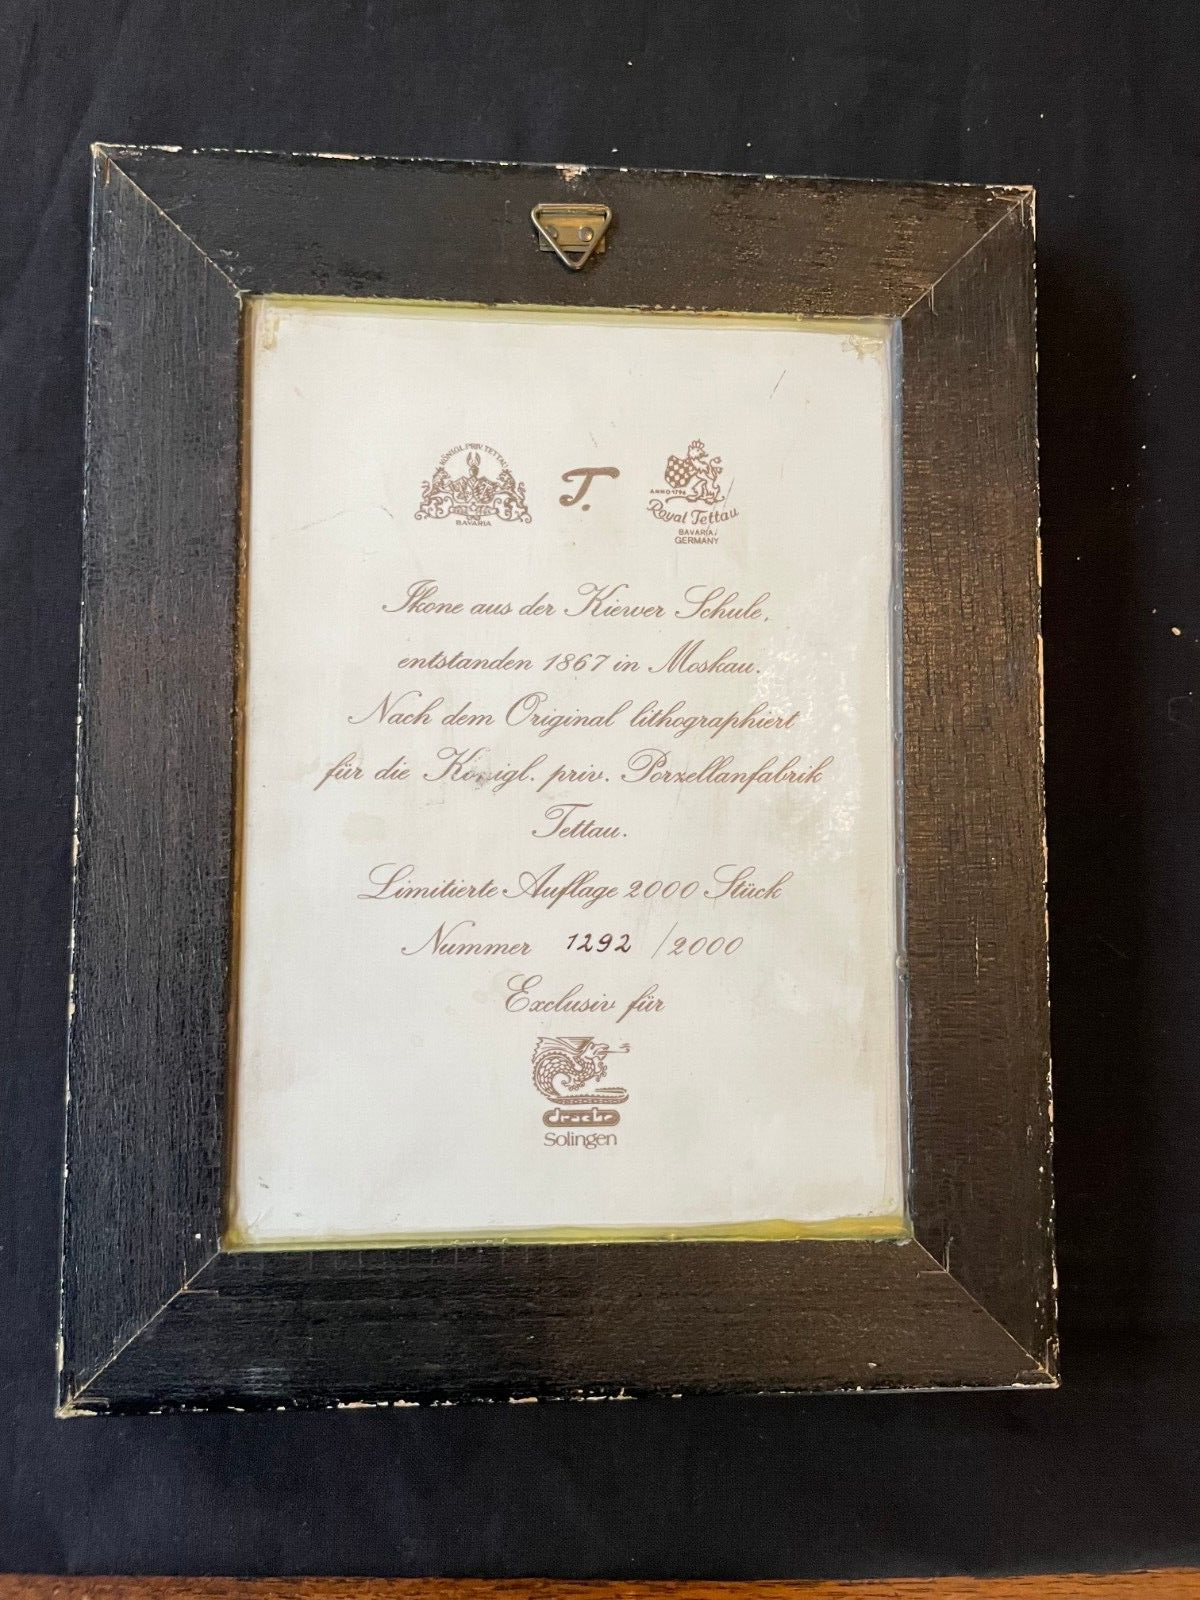 KÖNIGL. PRIV. TETTAU
BAVARIA
T.
ANNO 1794
Royal Tettau
BAVARIA/
GERMANY
Ikone aus der Kiewer Schule,
entstanden 1867 in Moskau.
Nach dem Original lithographiert
für die Königl. priv. Porzellanfabrik
Tettau.
Limitierte Auflage 2000 Stück
Nummer 1292 /2000
Exclusiv für
drache
Solingen